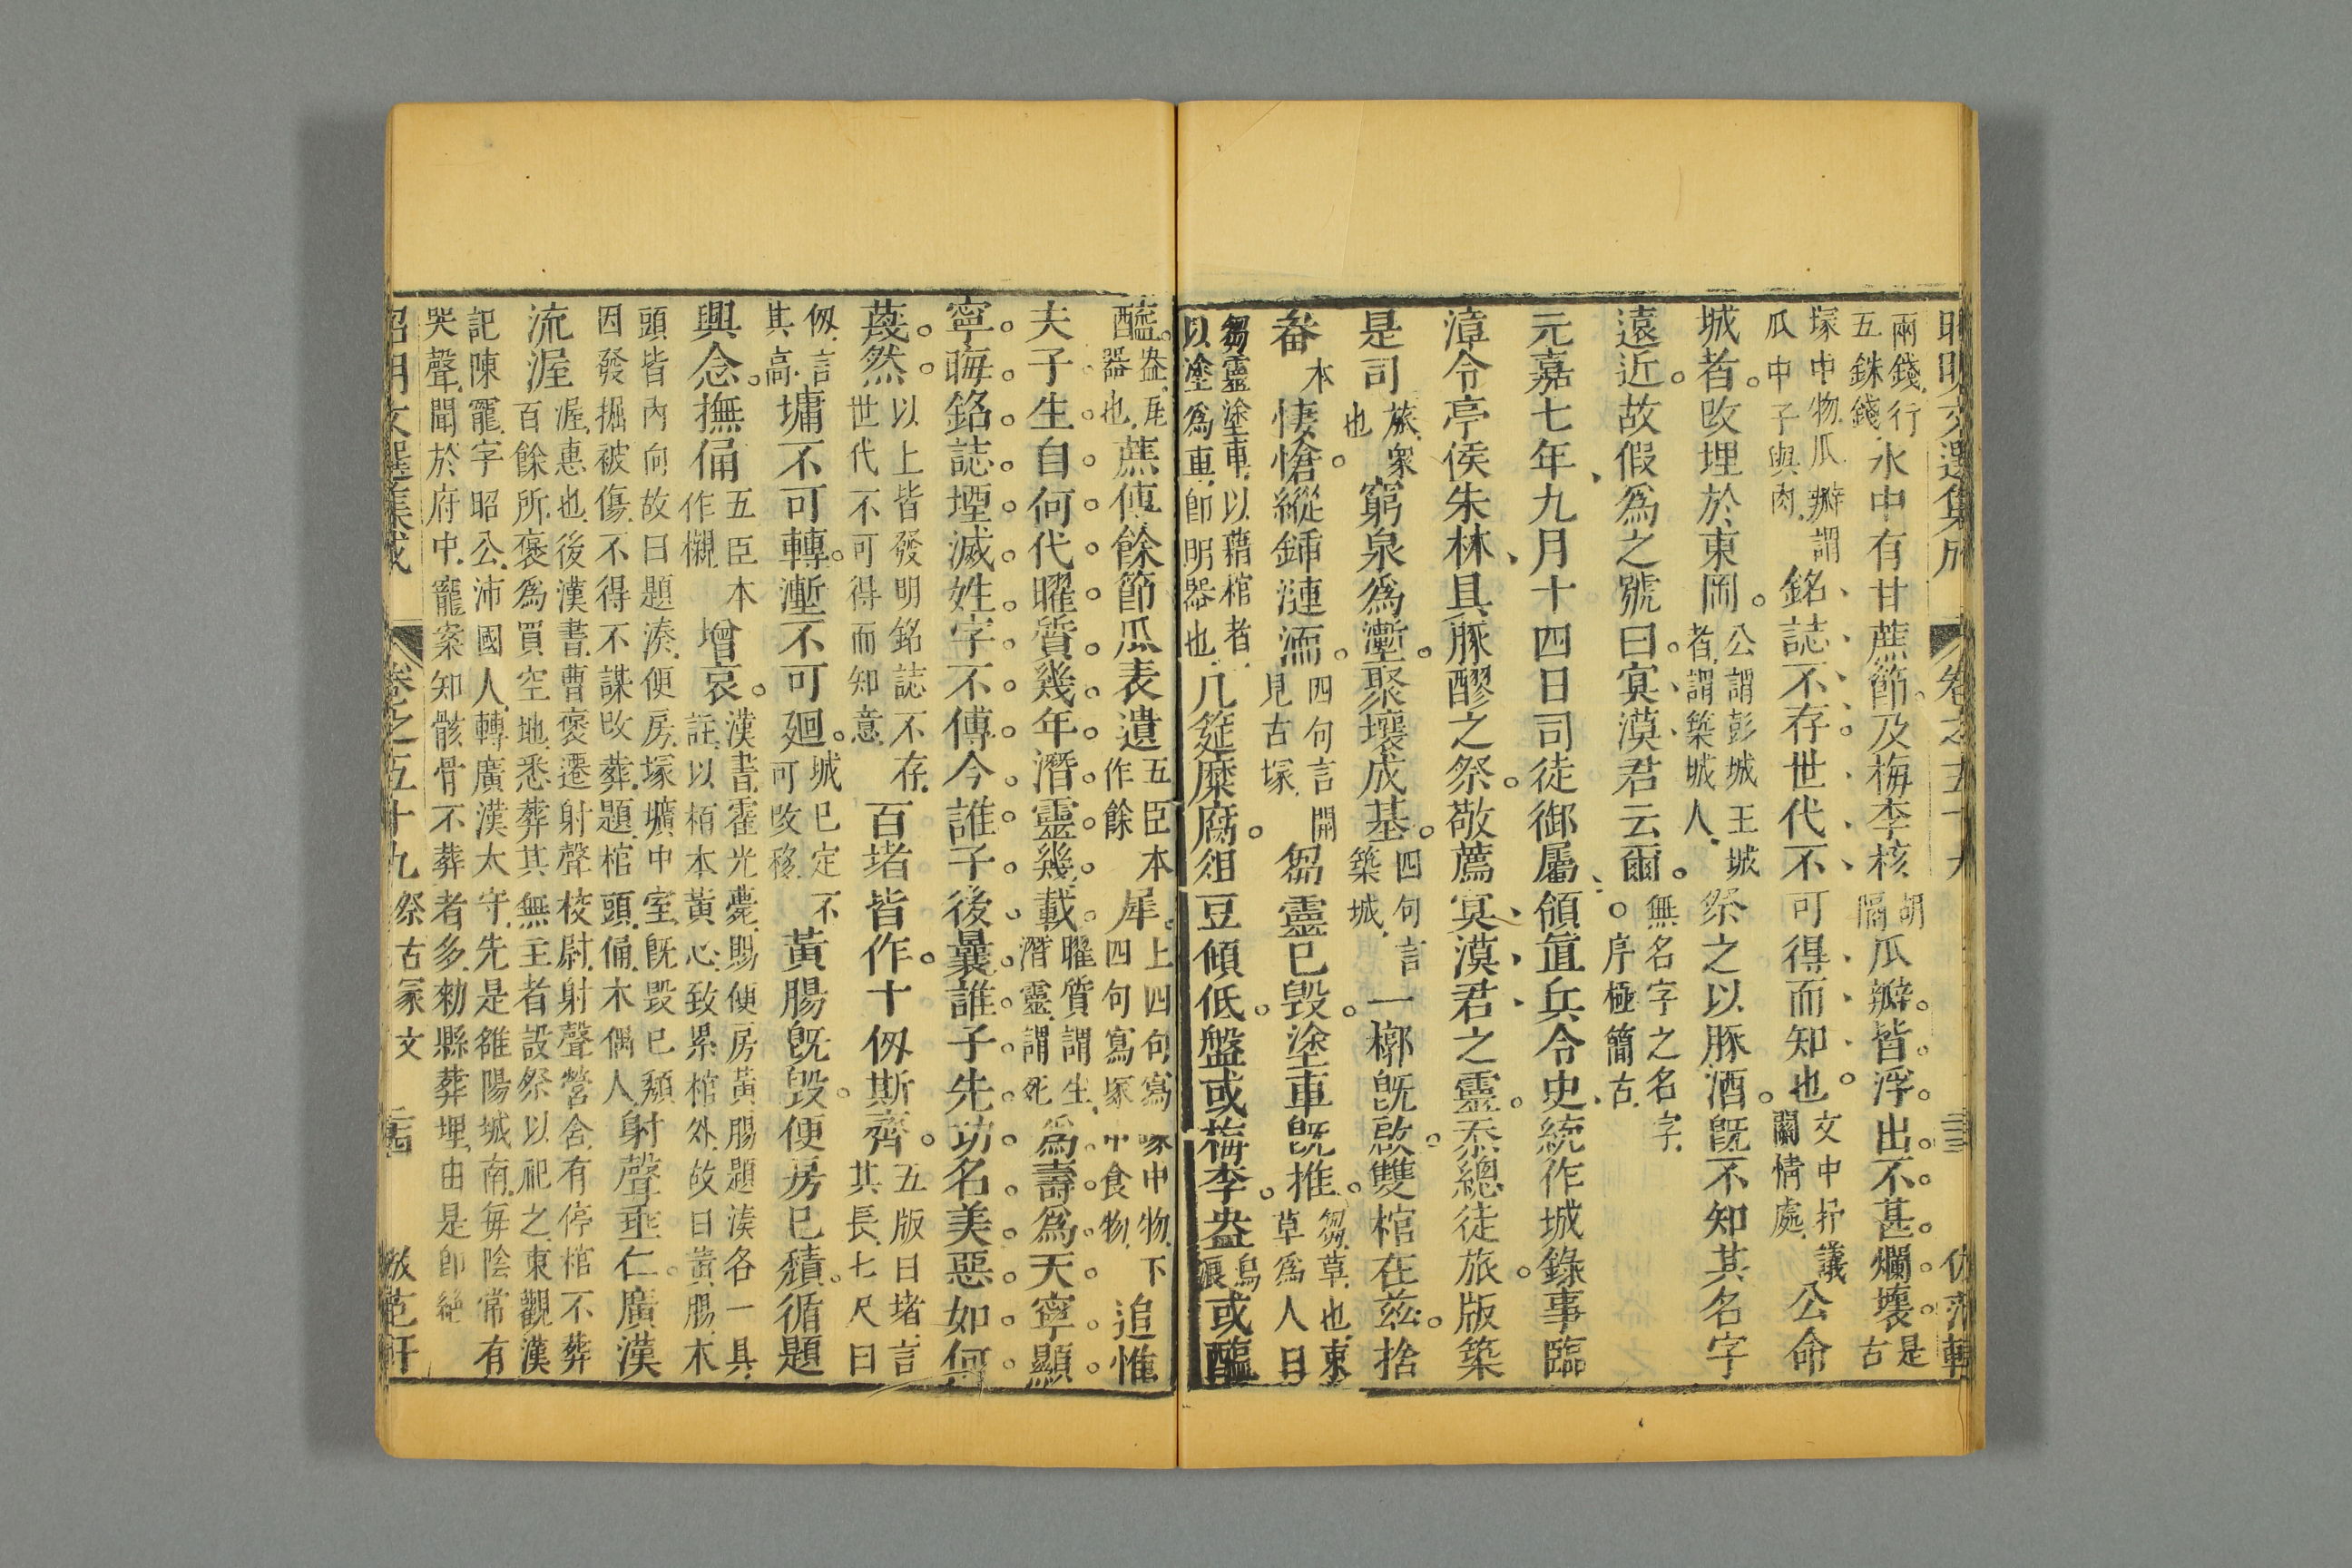 昭明文選集成 卷之五十九 三 伙范軒
兩錢行五銖錢水中有甘蔗節及梅李核胡隔瓜瓣皆浮出不甚爛壞是古
塚中物瓜瓣謂瓜中子與肉銘誌不存世代不可得而知也文中抒議關情處公命
城者改埋於東岡公謂彭城王城者謂築城人祭之以豚酒旣不知其名字
遠近故假爲之號曰㝠漠君云爾無名字之名字序極簡古
元嘉七年九月十四日司徒御屬領直兵令史統作城錄事臨
漳令亭侯朱林具豚醪之祭敬薦㝠漠君之靈忝總徒旅版築
是司旅衆也窮泉爲塹聚壤成基四句言築城一槨旣啟雙棺在茲捨
畚本悽愴縱鍤漣洏四句言開見古塚芻靈已毁塗車旣推芻草也束草爲人曰
芻靈塗車以藉棺者以塗爲車卽明器也几筵糜腐俎豆傾低盤或梅李盎烏浪或醢
醯盎瓦器也蔗傳餘節瓜表遺五臣本作餘犀上四句寫塚中物下四句寫塚中食物追惟
夫子生自何代曜質幾年潛靈幾載曜質謂生潛靈謂死爲壽爲夭寧顯
寧晦銘誌堙滅姓字不傳今誰子後曩誰子先功名美惡如何
蔑然以上皆發明銘誌不存世代不可得而知意百堵皆作十仭斯齊五版曰堵言其長七尺曰
仭言其高墉不可轉塹不可廻城已定不可改移黃腸旣毁便房已頹循題
興念撫俑五臣本作櫬增哀漢書霍光薨賜便房黃腸題湊各一具註以栢木黃心致累棺外故曰黃腸木
頭皆內向故曰題湊便房塚壙中室旣毁已頹因發掘被傷不得不謀改葬題棺頭俑木偶人射聲垂仁廣漢
流渥渥惠也後漢書曹褒遷射聲校尉射聲營舍有停棺不葬百餘所褒爲買空地悉葬其無主者設祭以祀之東觀漢
記陳寵字昭公沛國人轉廣漢太守先是雒陽城南每陰常有哭聲聞於府中寵案知骸骨不葬者多勑縣葬埋由是卽絕
昭明文選集成 卷之五十九 祭古冢文 三 敬范軒